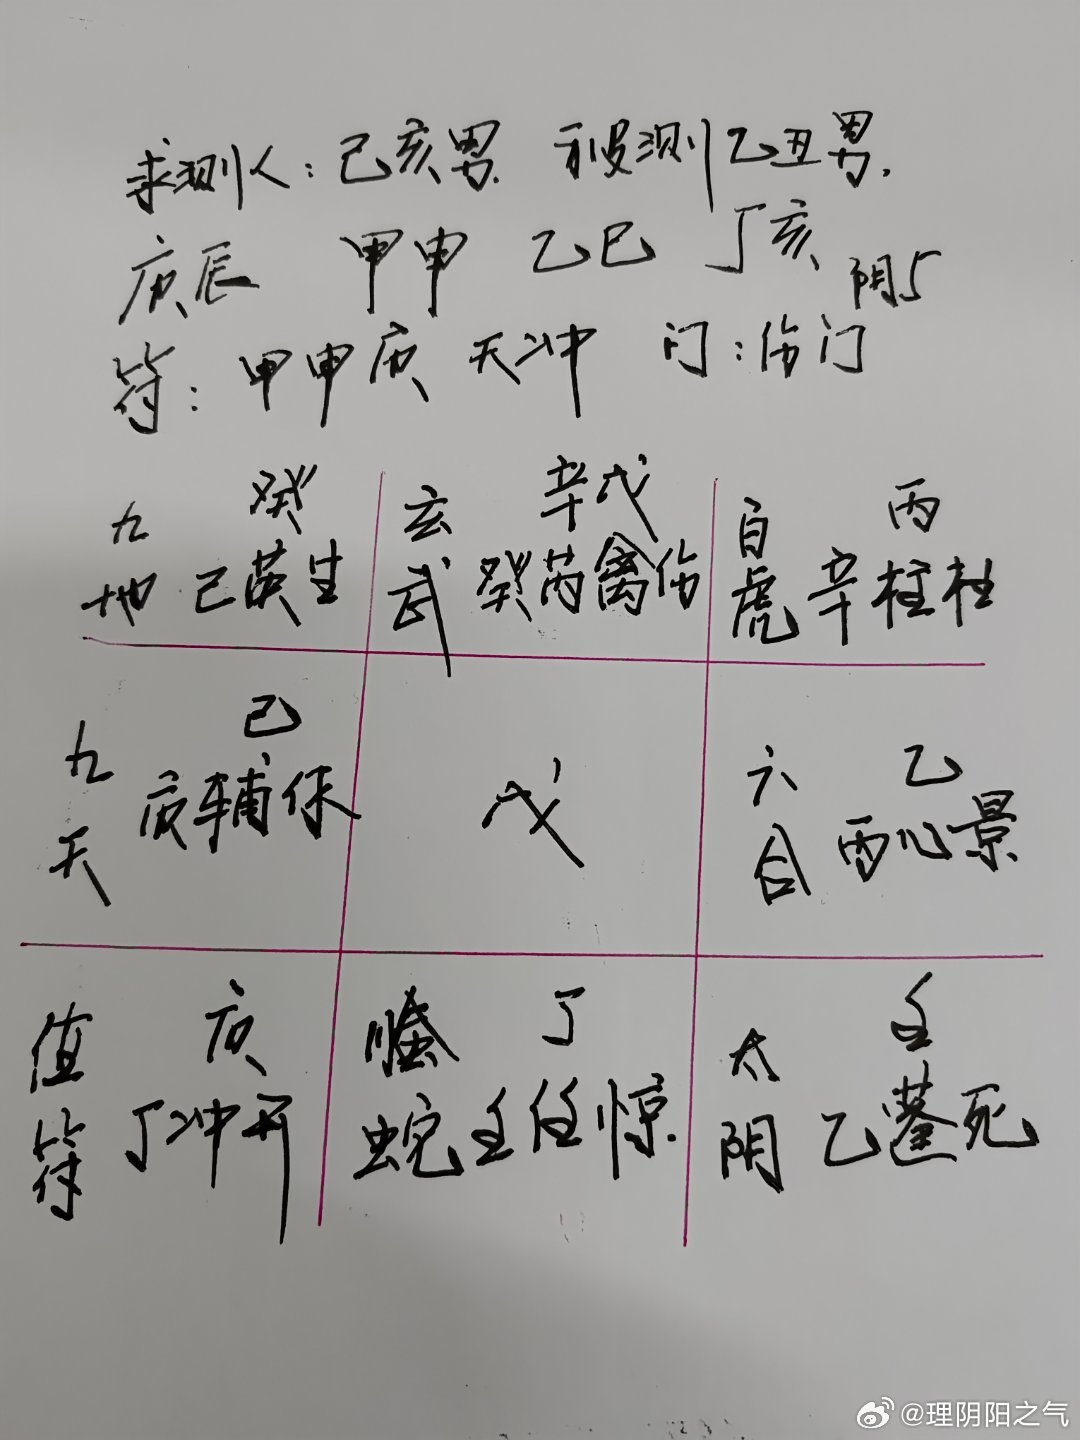 求测人：己亥男 被测乙丑男.
庚辰 甲申 乙巳 丁亥 阴5
符：甲申庚 天冲 门：伤门
九地 癸 己英生
玄武 辛戊 癸芮禽伤
白虎 丙 辛柱杜
九天 己 庚辅休
戊
六合 乙 丙心景
值符 庚 丁冲开
螣蛇 丁 壬任惊
太阴 壬 乙蓬死
@理阴阳之气